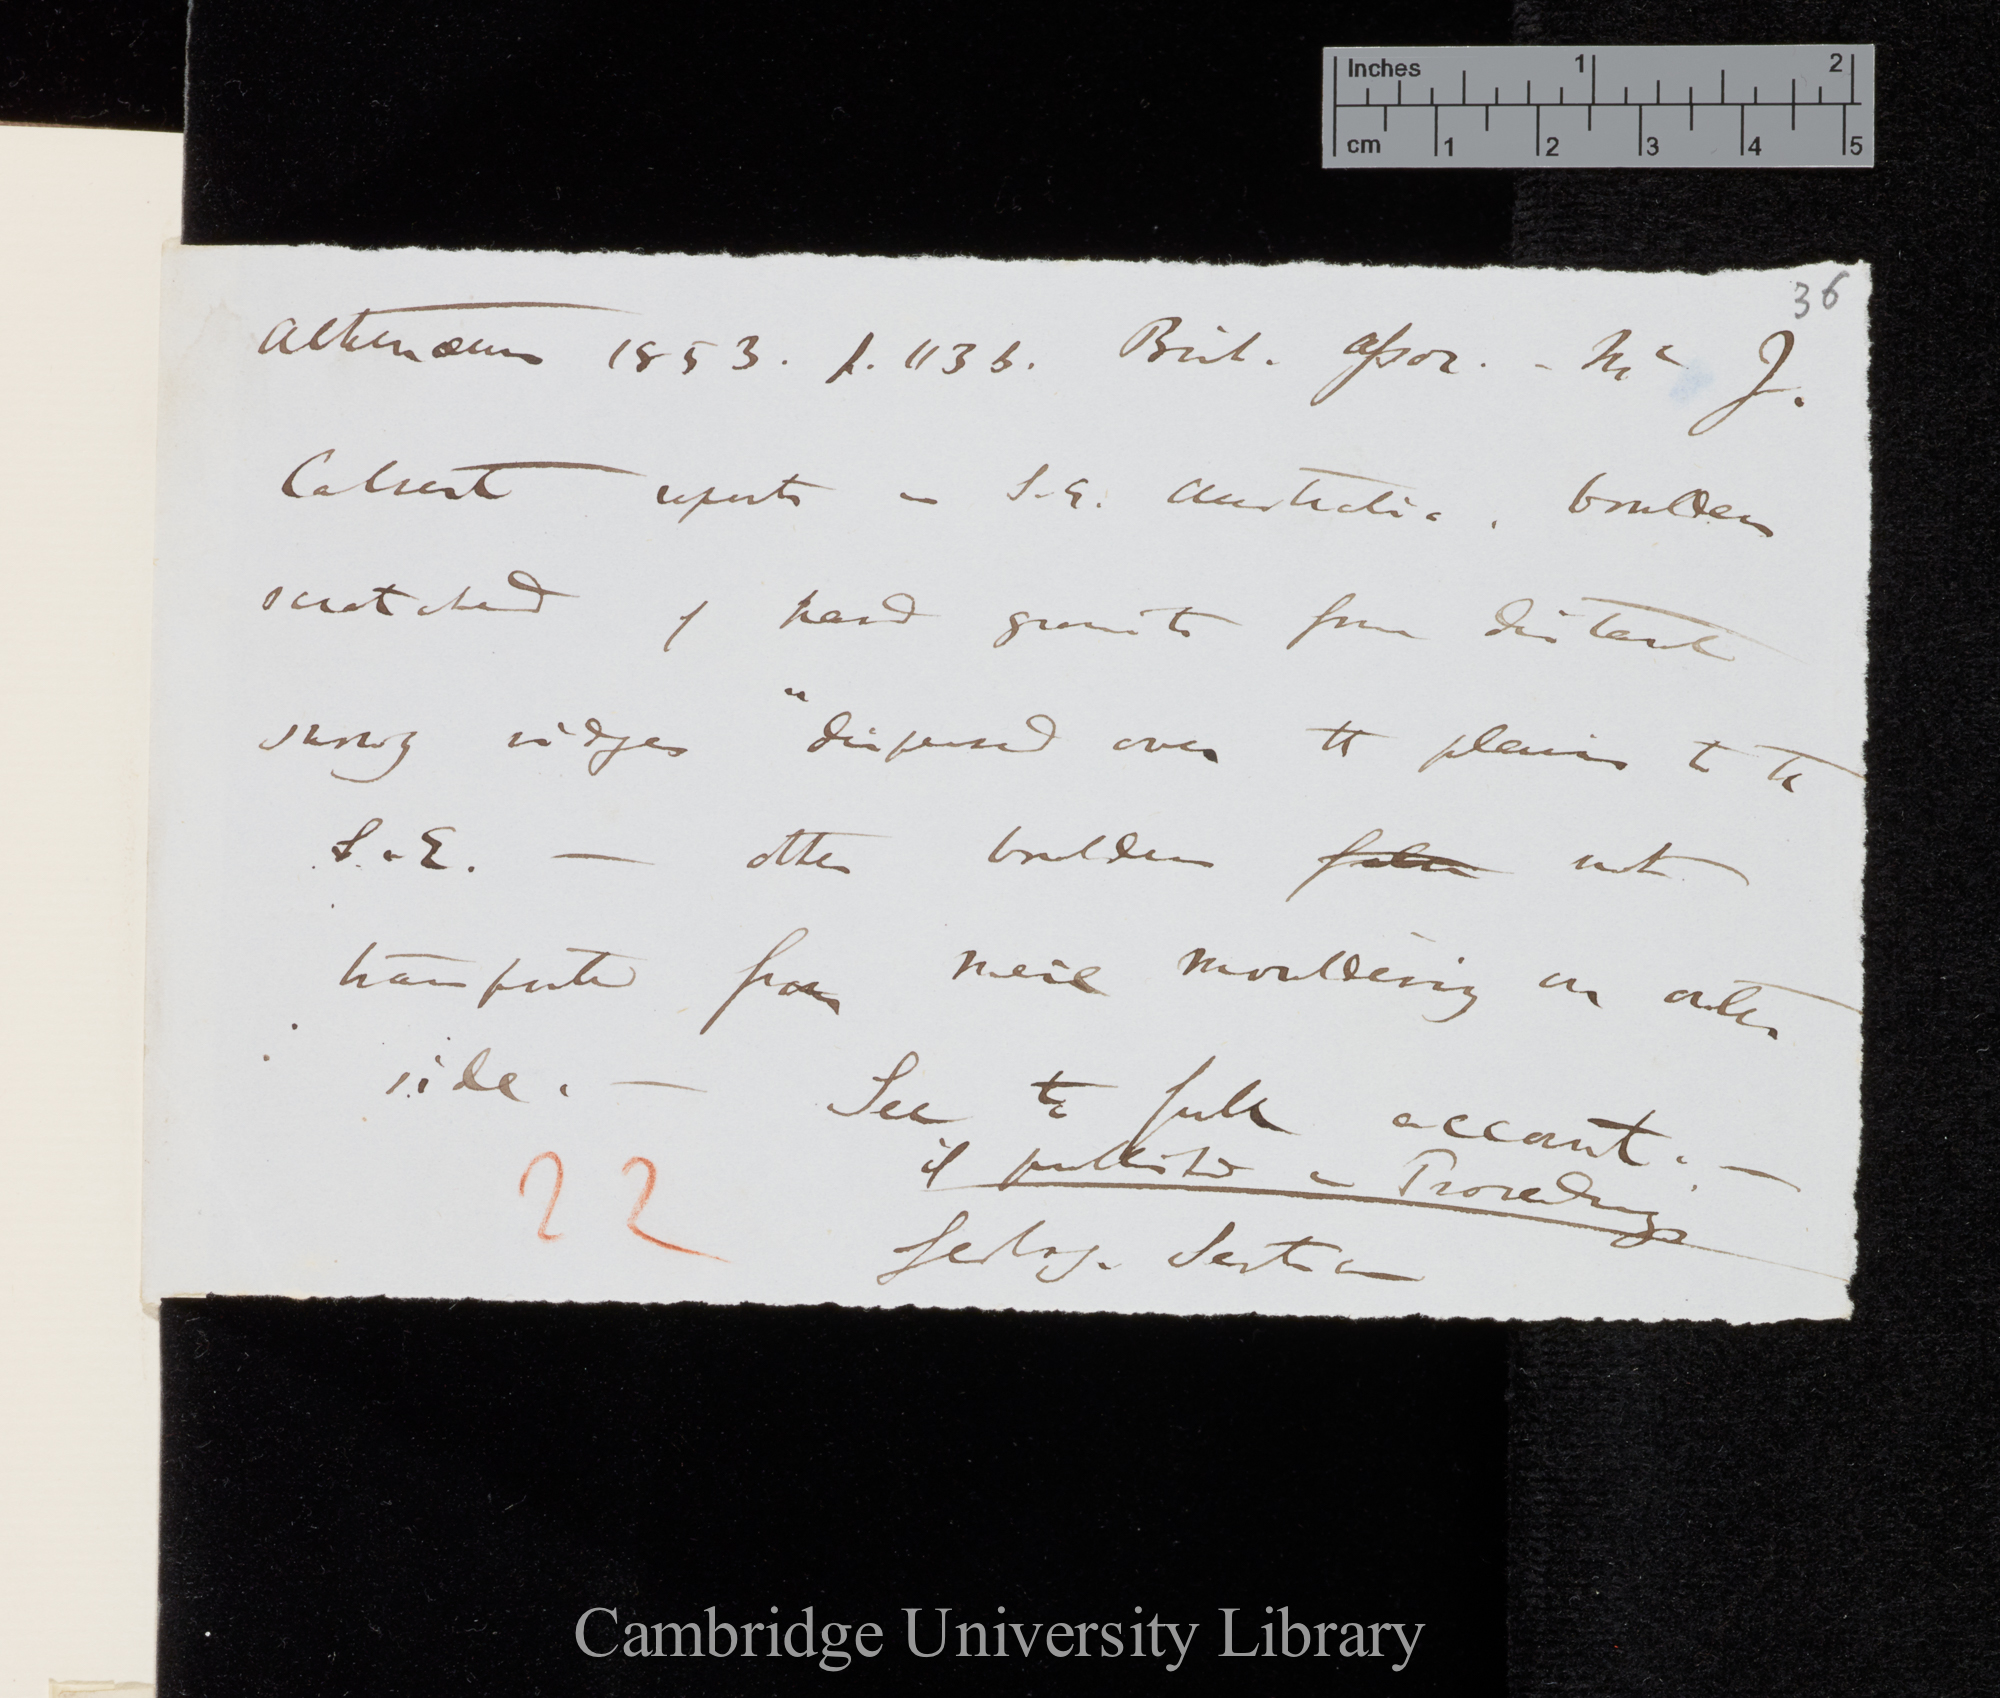 Inches 1 2
cm 1 2 3 4 5
36
Athenæum 1853. p. 1136. Brit. Assoc. - Mr J.
Calvert reports in S.E. Australia, boulders
scratched of hard granite from distant
snowy ridges "dispersed over the plains to the
S.E. — other boulders not
transported from mere mouldering on outer
side. — See to full account. —
if published in Proceedings
Geolog. Section
22
Cambridge University Library